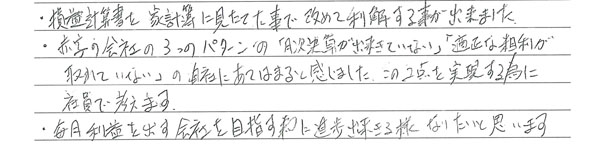 ・損益計算書を家計簿に見たてた事で改めて利解する事が出来ました。
・赤字の会社の3つのパターンの「月次決算が出来ていない」「適正な粗利が
取れていない」の自社にあてはまると感じました。この2点を実現する為に
社員で考えます。
・毎月利益を出す会社を目指す和に進歩出来る様なりたいと思います